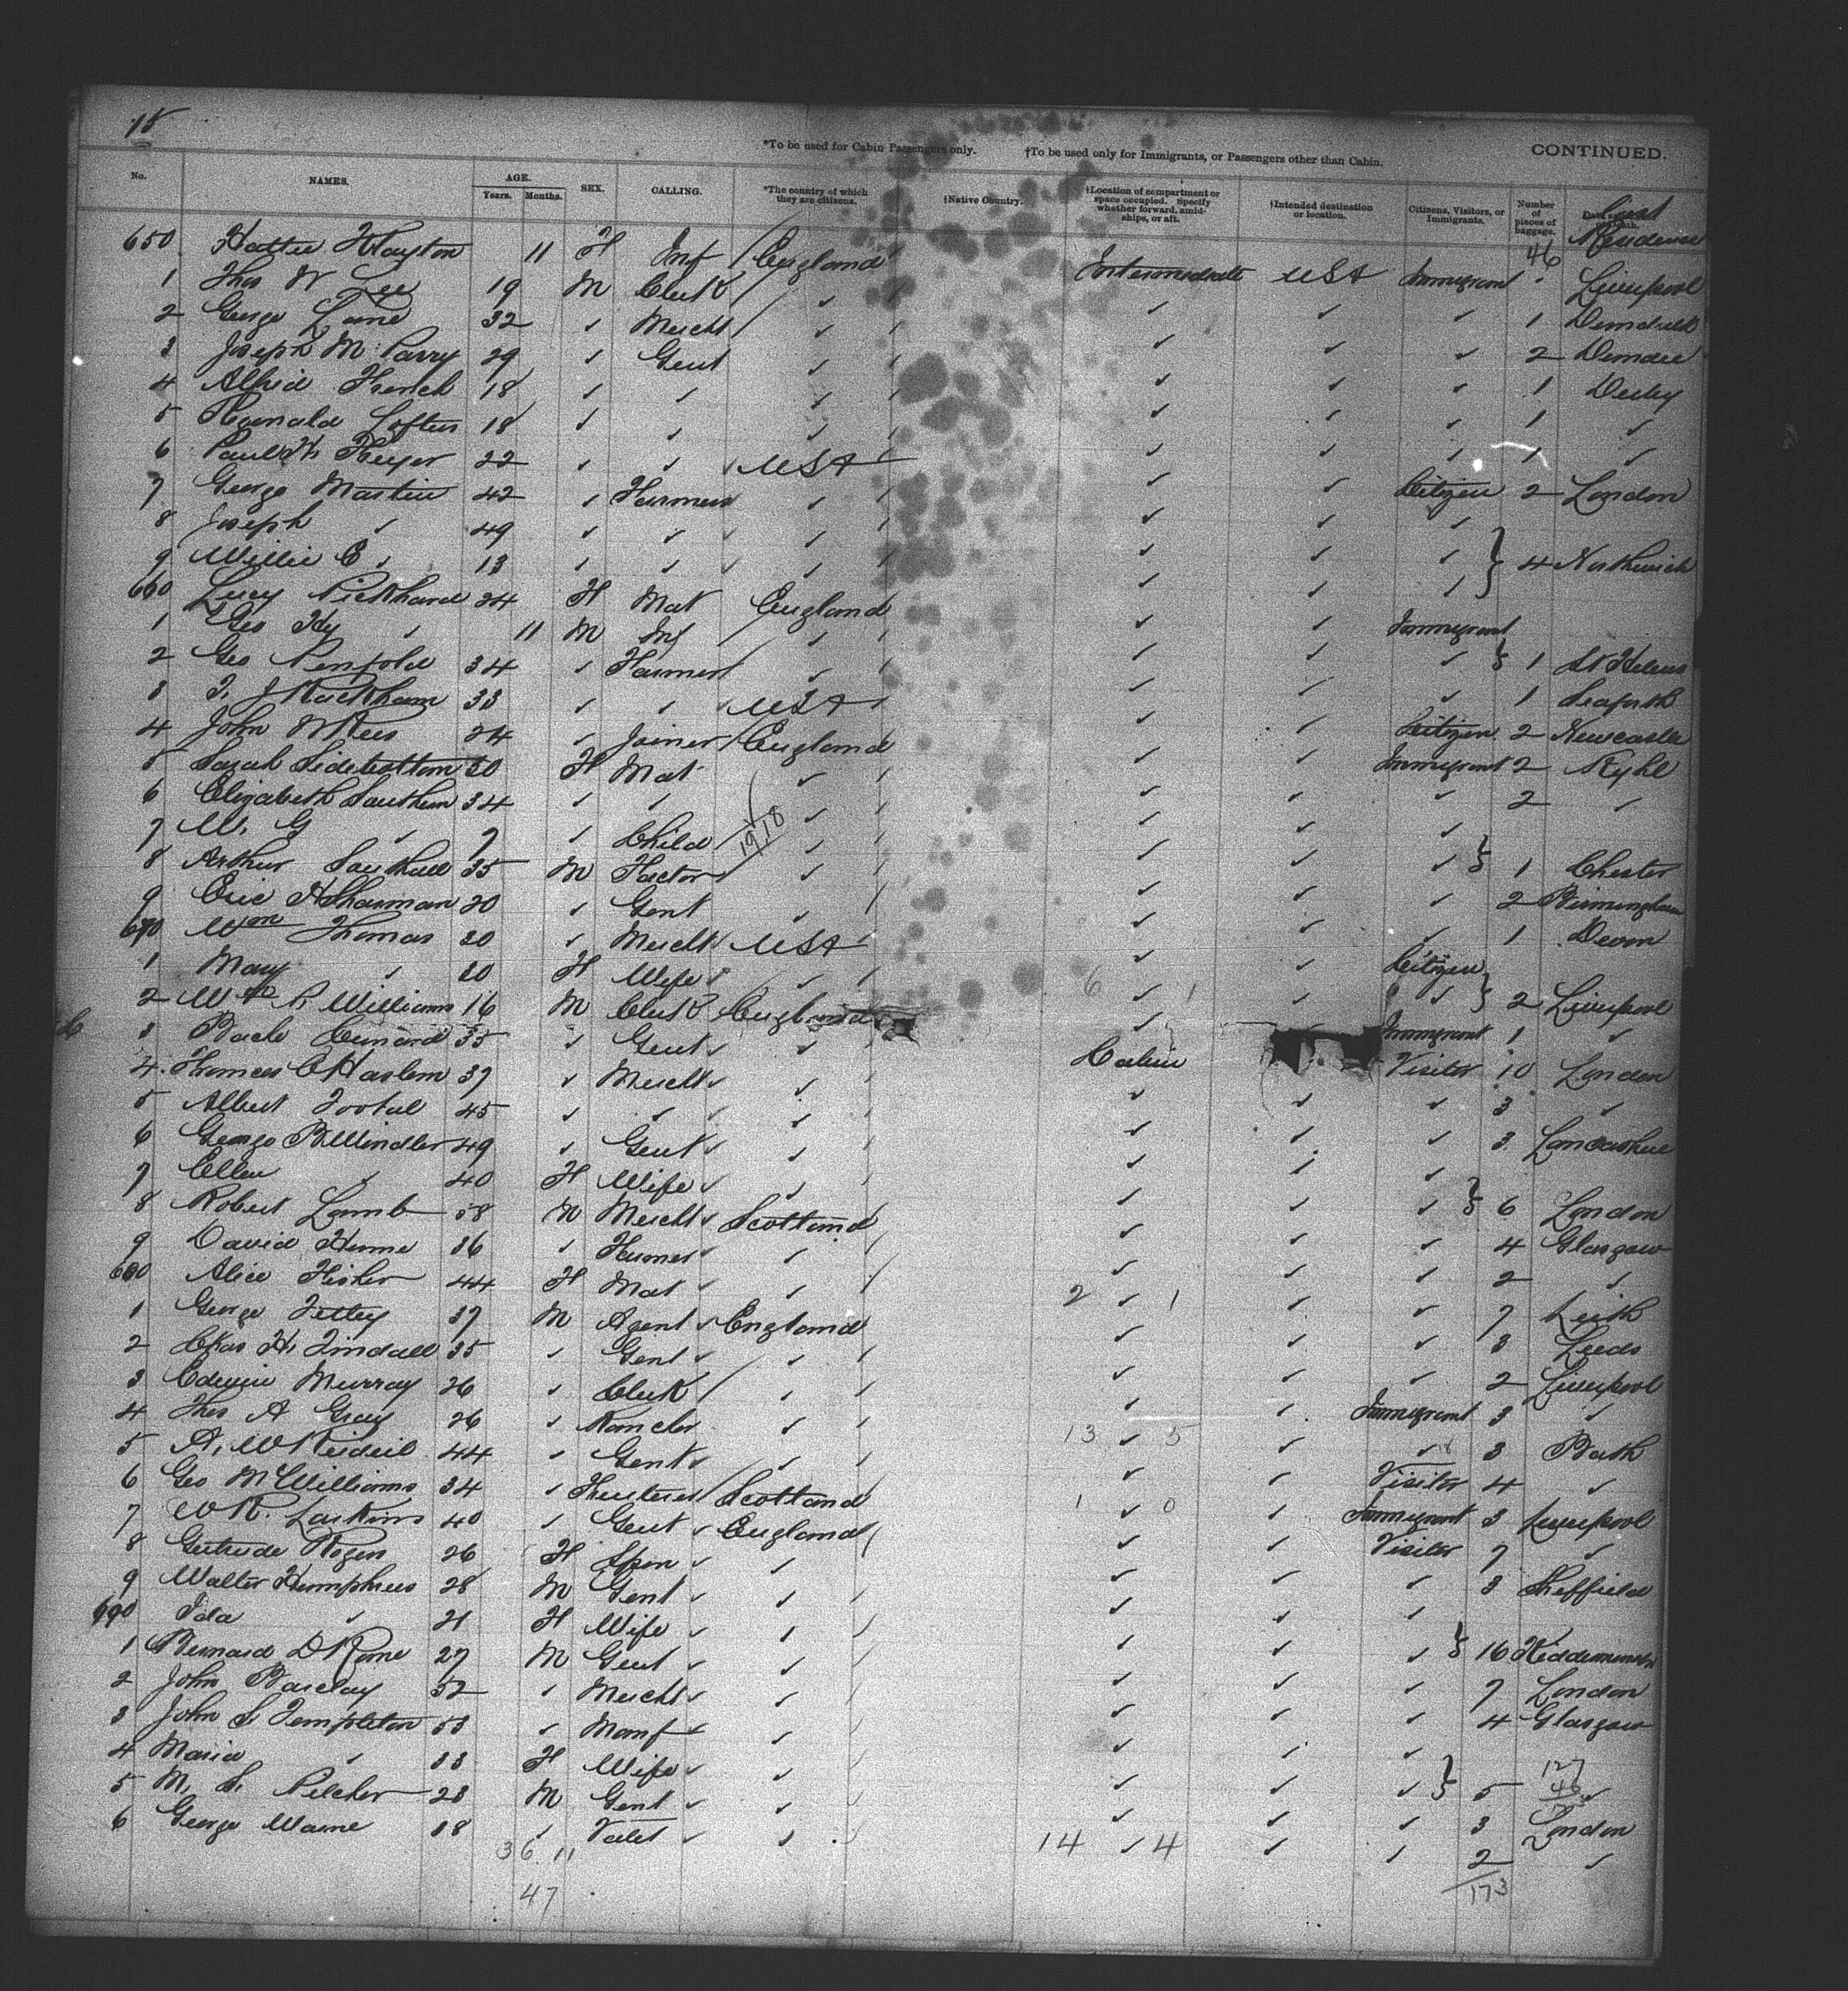 15
*To be used for Cabin Passengers only. †To be used only for Immigrants, or Passengers other than Cabin. CONTINUED.
No. NAMES. AGE. Years. Months. SEX. CALLING. *The country of which they are citizens. †Native Country. †Location of compartment or space occupied. Specify whether forward, amidships, or aft. †Intended destination or location. Citizens, Visitors, or Immigrants. Number of pieces of baggage.
46
650 11 F Inf England Intermediate USA Immigrant Liverpool
1 Thos W Lee 19 M Clerk ✓ ✓ ✓ ✓ 1
2 George Lane 32 ✓ Mercht ✓ ✓ ✓ ✓ 2 Dundee
3 Joseph M Parry 29 ✓ Gent ✓ ✓ ✓ ✓ 1 Derby
4 Alfred French 18 ✓ ✓ ✓ ✓ ✓ ✓ 1 ✓
5 Reginald Loftus 18 ✓ ✓ ✓ ✓ ✓ ✓ 1 ✓
6 Paul H. 22 ✓ ✓ USA ✓ ✓ Citizen 2 London
7 George Martin 42 ✓ Farmer ✓ ✓ ✓ ✓
8 Joseph ✓ 49 ✓ ✓ ✓ ✓ ✓ ✓ 4 Northwich
9 Willie E ✓ 13 ✓ ✓ ✓ ✓ ✓ ✓
660 Lucy Pickhard 24 F Mat England ✓ ✓ Immigrant
1 Geo Hy ✓ 11 M Inf ✓ ✓ ✓ ✓ 1 St Helens
2 Geo Penfold 34 ✓ Farmer ✓ ✓ ✓ ✓ 1 Seaforth
3 T. J Rackham 33 ✓ ✓ USA ✓ ✓ Citizen 2 Newcastle
4 John W Rees 24 ✓ Joiner England ✓ ✓ Immigrant 2 Ryhl
5 Sarah Sidebottom 30 F Mat ✓ ✓ ✓ ✓ 2 ✓
6 Elizabeth Southern 34 ✓ ✓ ✓ ✓ ✓ ✓
7 W. G ✓ 7 ✓ Child 19 18 ✓ ✓ ✓ ✓ 1 Chester
8 Arthur Southall 35 M Factor ✓ ✓ ✓ ✓ 2 Birmingham
9 Eric H Sharman 20 ✓ Gent ✓ ✓ ✓ ✓ 1 Devon
670 Wm Thomas 30 ✓ Mercht USA ✓ ✓ Citizen
1 Mary ✓ 30 F Wife ✓ 6 ✓ 1 ✓ ✓ 2 Liverpool
2 Wm P. Williams 16 M Clerk England ✓ Immigrant 1 ✓
3 Bache Cunard 35 ✓ Gent ✓ Cabin Visitor 10 London
4 Thomas C Haslem 37 ✓ Mercht ✓ ✓ ✓ ✓ 3 ✓
5 Albert Tootal 45 ✓ ✓ ✓ ✓ ✓ ✓ 3 Lancashire
6 George B Windler 49 ✓ Gent ✓ ✓ ✓ ✓
7 Ellen ✓ 40 F Wife ✓ ✓ ✓ ✓ 6 London
8 Robert Lamb 58 M Mercht Scotland ✓ ✓ ✓ 4 Glasgow
9 David Hume 36 ✓ Farmer ✓ ✓ ✓ ✓ 2 ✓
680 Alice Fisher 44 F Mat ✓ 2 ✓ 1 ✓ ✓ 7 Leith
1 George Tetley 37 M Agent England ✓ ✓ ✓ 3 Leeds
2 Chas H. Tindall 35 ✓ Gent ✓ ✓ ✓ ✓ 2 Liverpool
3 Edwin Murray 26 ✓ Clerk ✓ ✓ ✓ Immigrant 3 ✓
4 Thos A Gray 26 ✓ Rancher ✓ 13 ✓ 5 ✓ ✓ 3 Bath
5 A. W 44 ✓ Gent ✓ ✓ ✓ Visitor 4 ✓
6 Geo McWilliams 34 ✓ Scotland 1 ✓ 0 ✓ Immigrant 3 Liverpool
7 W R. Larkins 40 ✓ Gent England ✓ ✓ Visitor 7 ✓
8 Gertrude Rogers 26 F Spin ✓ ✓ ✓ ✓ 3 Sheffield
9 Walter Humphries 28 M Gent ✓ ✓ ✓ ✓
690 Ida ✓ 21 F Wife ✓ ✓ ✓ ✓ 16 Kidderminster
1 Bernard D Rome 27 M Gent ✓ ✓ ✓ ✓ 7 London
2 John Barclay 52 ✓ Mercht ✓ ✓ ✓ ✓ 4 Glasgow
3 John S. Templeton 53 ✓ Manf ✓ ✓ ✓ ✓
4 Maria ✓ 33 F Wife ✓ ✓ ✓ ✓ 5 ✓
5 M. S. Pilcher 23 M Gent ✓ ✓ ✓ ✓ 3 London
6 George Warne 18 ✓ Valet ✓ 14 ✓ 4 ✓ ✓ 2 ✓
127
46
36 11
47
173